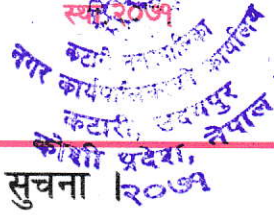 स्था २०७१
कटारी नगरपालिका
नगर कार्यपालिकाको कार्यालय
कटारी, उदयपुर
कोशी प्रदेश, नेपाल
सुचना ।
२०७१